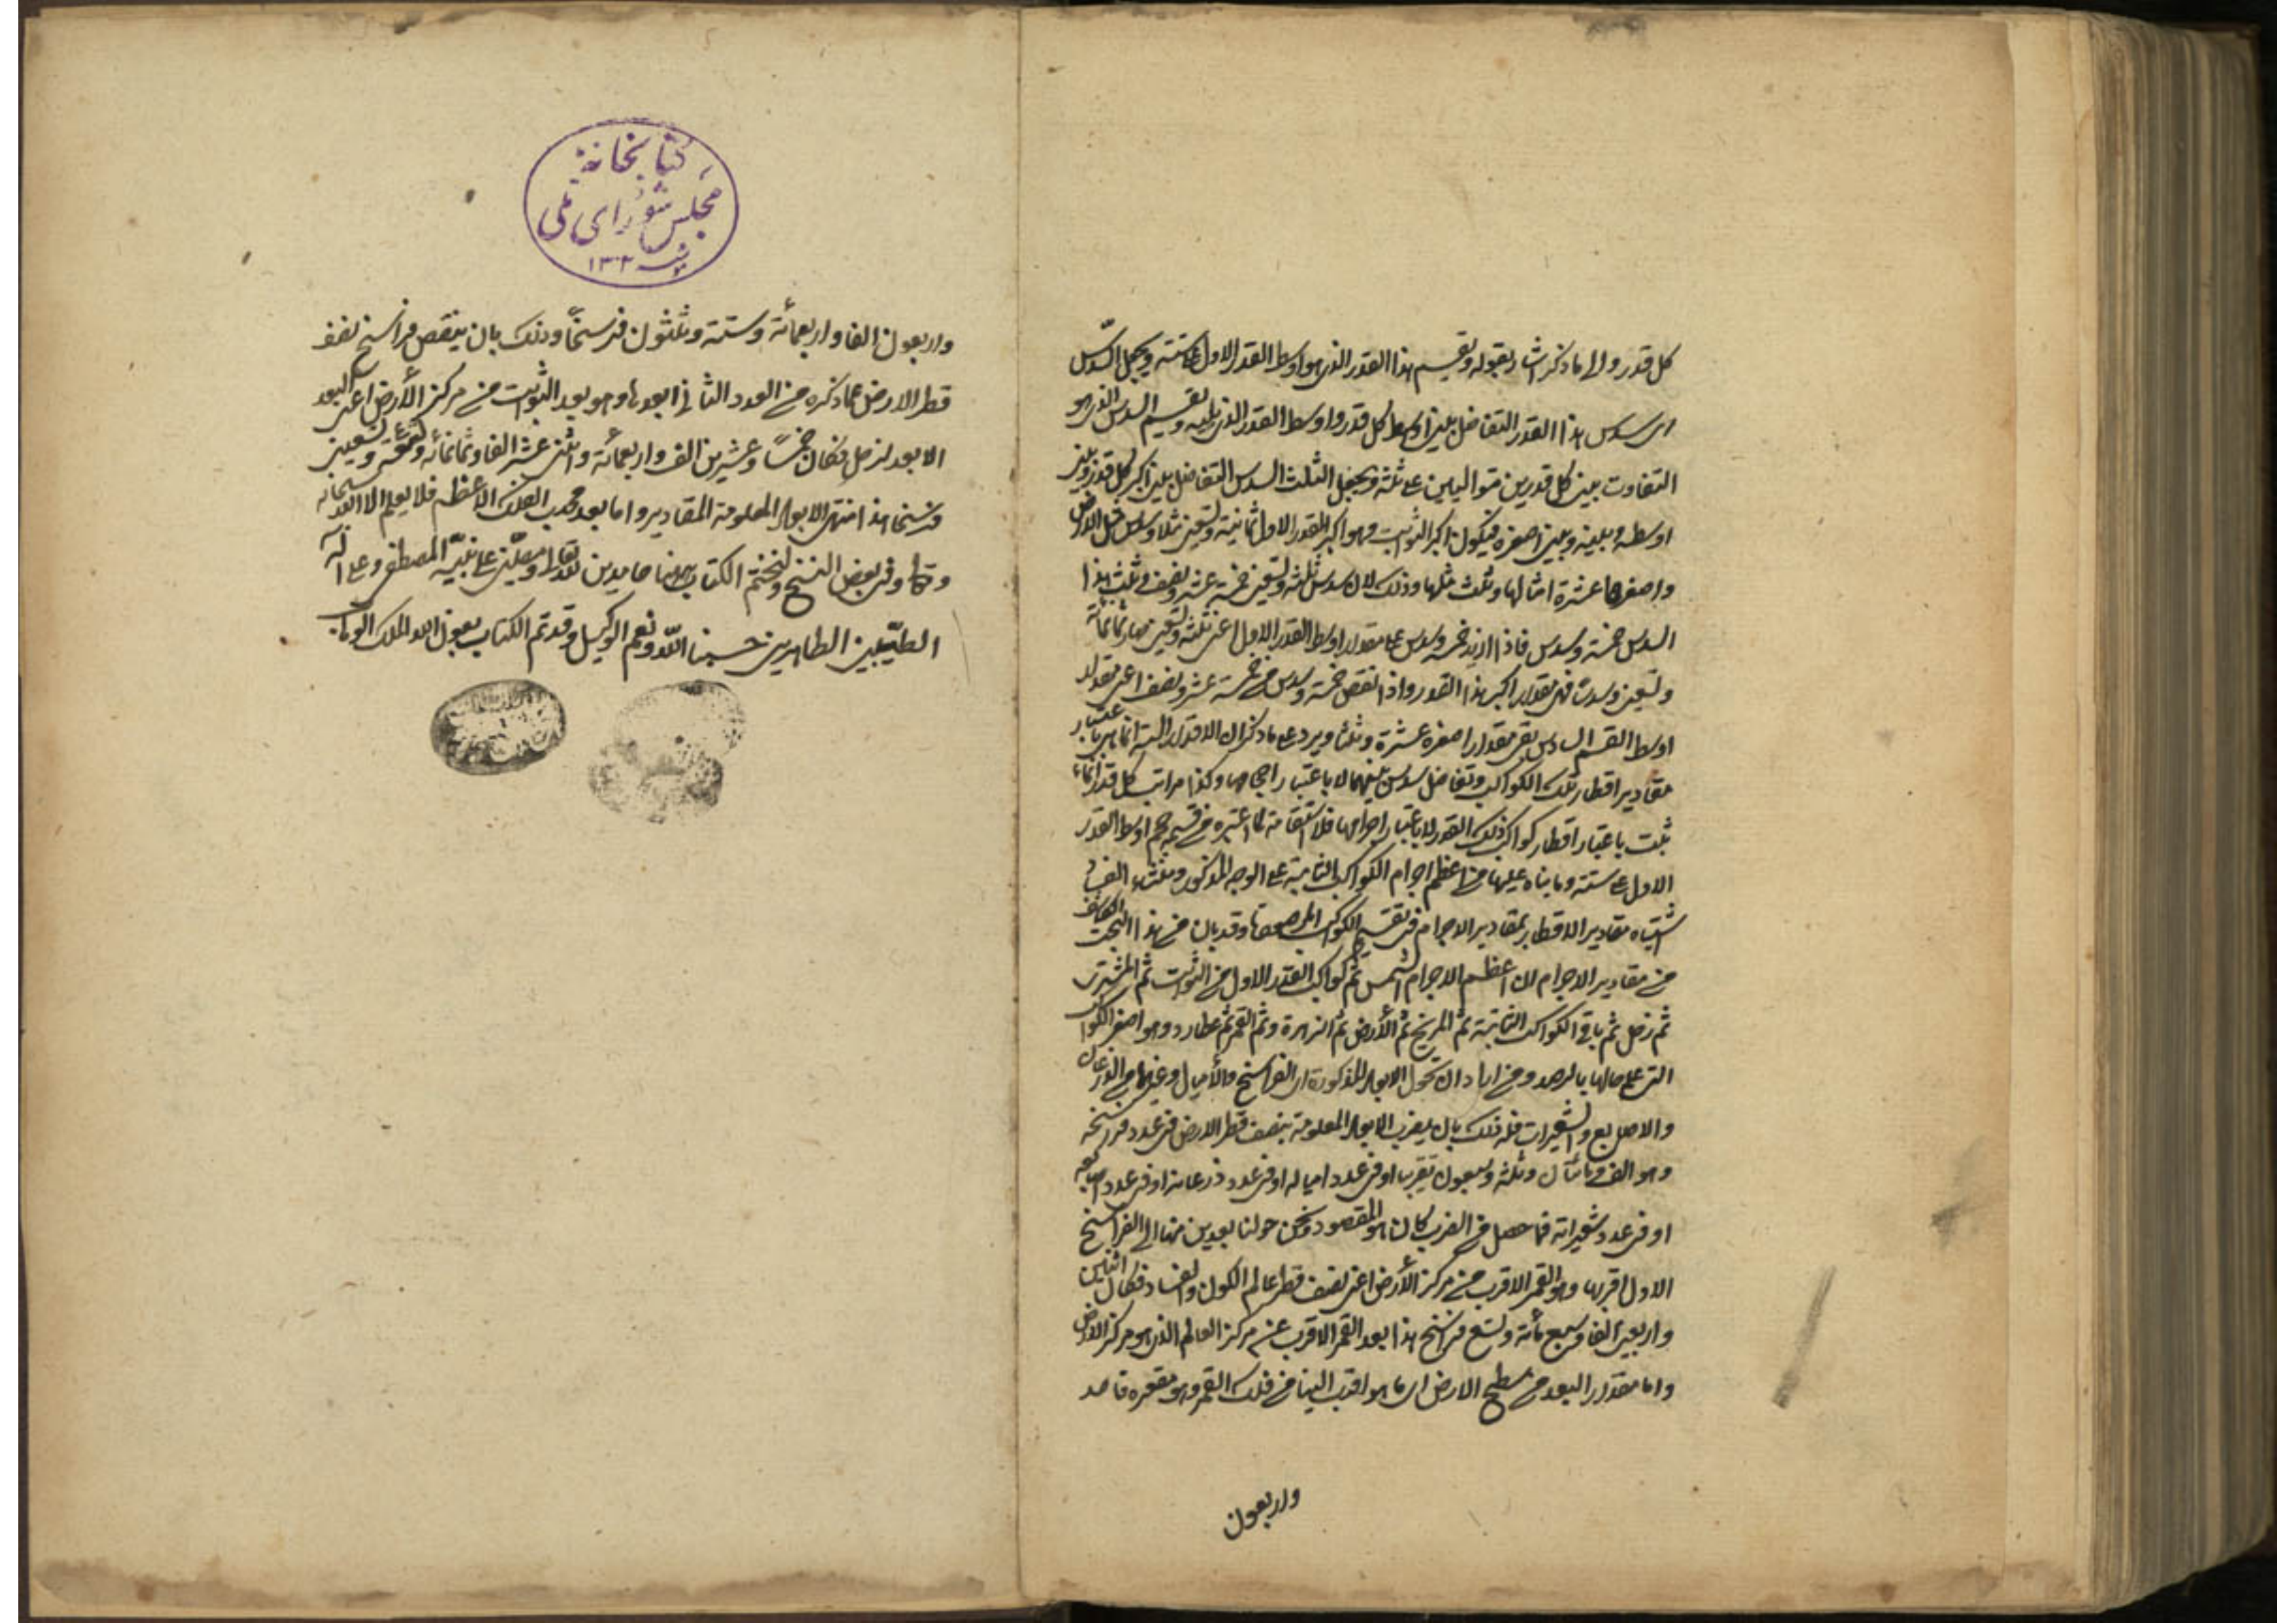 كل قدر والى ما ذكر اشار بقوله ويقسم هذا القدر الذى هو اوسط القدر الاول على ستة ويجعل السدس
اى سدس هذا القدر التفاضل بين اوسط كل قدر واوسط القدر الذى يليه ويقسم السدس الذى هو
التفاوت بين كل قدرين متواليين على ثلثة ويجعل الثلث السدس التفاضل بين اكبر كل قدر وبين
اوسطه وبينه وبين اصغره فيكون اكبر الثوابت وهو اكبر القدر الاول ثمانية وتسعين مثلا وسدس مثل الارض
واصغرها عشرة امثالها وثلث مثلها وذلك لان سدس ثلثة وتسعين خمسة عشر ونصف وثلث هذا
السدس خمسة وسدس فاذا ازيد خمسة وسدس على مقدار اوسط القدر الاول اعنى ثلثة وتسعين صار ثمانية
وتسعين وسدسا فهى مقدار اكبر هذا القدر واذا نقص خمسة وسدس من خمسة عشر ونصف اعنى مقدار
اوسط القسم السادس بقى مقدار اصغره عشرة وثلثا ويرد على ما ذكر ان الاقدار الستة انما هى باعتبار
مقادير اقطار تلك الكواكب وتفاضل سدس بينهما لا باعتبار اجرامها وكذا مراتب كل قدر انما
ثبت باعتبار اقطار كواكب ذلك القدر لا باعتبار اجرامها فلا استقامة لما اعتبره من قسمة جرم اوسط القدر
الاول على ستة وما بناه عليها من اعظم اجرام الكواكب الثابتة على الوجه المذكور ومنشاء الفساد
اشتباه مقادير الاقطار بمقادير الاجرام فى تقسيم الكواكب المرصودة وقد بان من هذا البحث
من مقادير الاجرام ان اعظم الاجرام الشمس ثم كواكب القدر الاول من الثوابت ثم المشترى
ثم زحل ثم باقى الكواكب الثابتة ثم المريخ ثم الأرض ثم الزهرة وثم القمر ثم عطارد وهو اصغر الكواكب
التى على حالها بالرصد ومن اراد ان تحول الابعاد المذكورة الى الفراسخ والأميال وغيرها من الذرعان
والاصابع والشعيرات فله ذلك بان يضرب الابعاد المعلومة بنصف قطر الارض فى عدد فرسخه
وهو الف ومائتان وثلثة وسبعون تقريبا او فى عدد امياله او فى عدد ذرعانه او فى عدد اصابعه
او فى عدد شعيراته فما حصل من الضرب كان هو المقصود ونحن حولنا بعدين منها الى الفراسخ
الاول اقربها وهو القمر الاقرب من مركز الأرض اعنى نصف قطر عالم الكون والفساد فكان اثنين
واربعين الفا وسبع مائة وتسع فراسخ هذا بعد القمر الاقرب عن مركز العالم الذى هو مركز الارض
واما مقدار البعد من سطح الارض الى ما هو اقرب الينا من فلك القمر وهو مقعره فاحد
واربعون
كتابخانهٔ
مجلس شورای ملی
١٣٠٢
واربعون الفا واربعمائة وستة وثلثون فرسخًا وذلك بان ينقص فراسخ نصف
قطر الارض عما ذكره من العدد الثانى ابعدها وهو بعد الثوابت من مركز الأرض اعنى البعد
الابعد لزحل فكان خمسًا وعشرين الف الف واربعمائة واثنى عشر الفا وثمانمائة وتسعة وتسعين
فرسخا هذا منتهى الابعاد المعلومة المقادير واما بعد محدب الفلك الاعظم فلا يعلم الا الله سبحانه
وتعالى وفى بعض النسخ ولنختم الكتاب ههنا حامدين لله تعالى ومصلين على نبيّه المصطفى وعلى آله
الطيّبين الطاهرين حسبنا اللّه ونعم الوكيل وقد تم الكتاب بعون الله الملك الوهاب